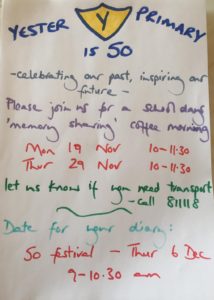 YESTER Y PRIMARY
is 50
- celebrating our past, inspiring our
future -
Please join us for a school days
'memory sharing' coffee morning
Mon 19 Nov 10-11.30
Thur 29 Nov 10-11.30
let us know if you need transport
- call 811118
Date for your diary:
50 festival - Thur 6 Dec
9-10.30 am